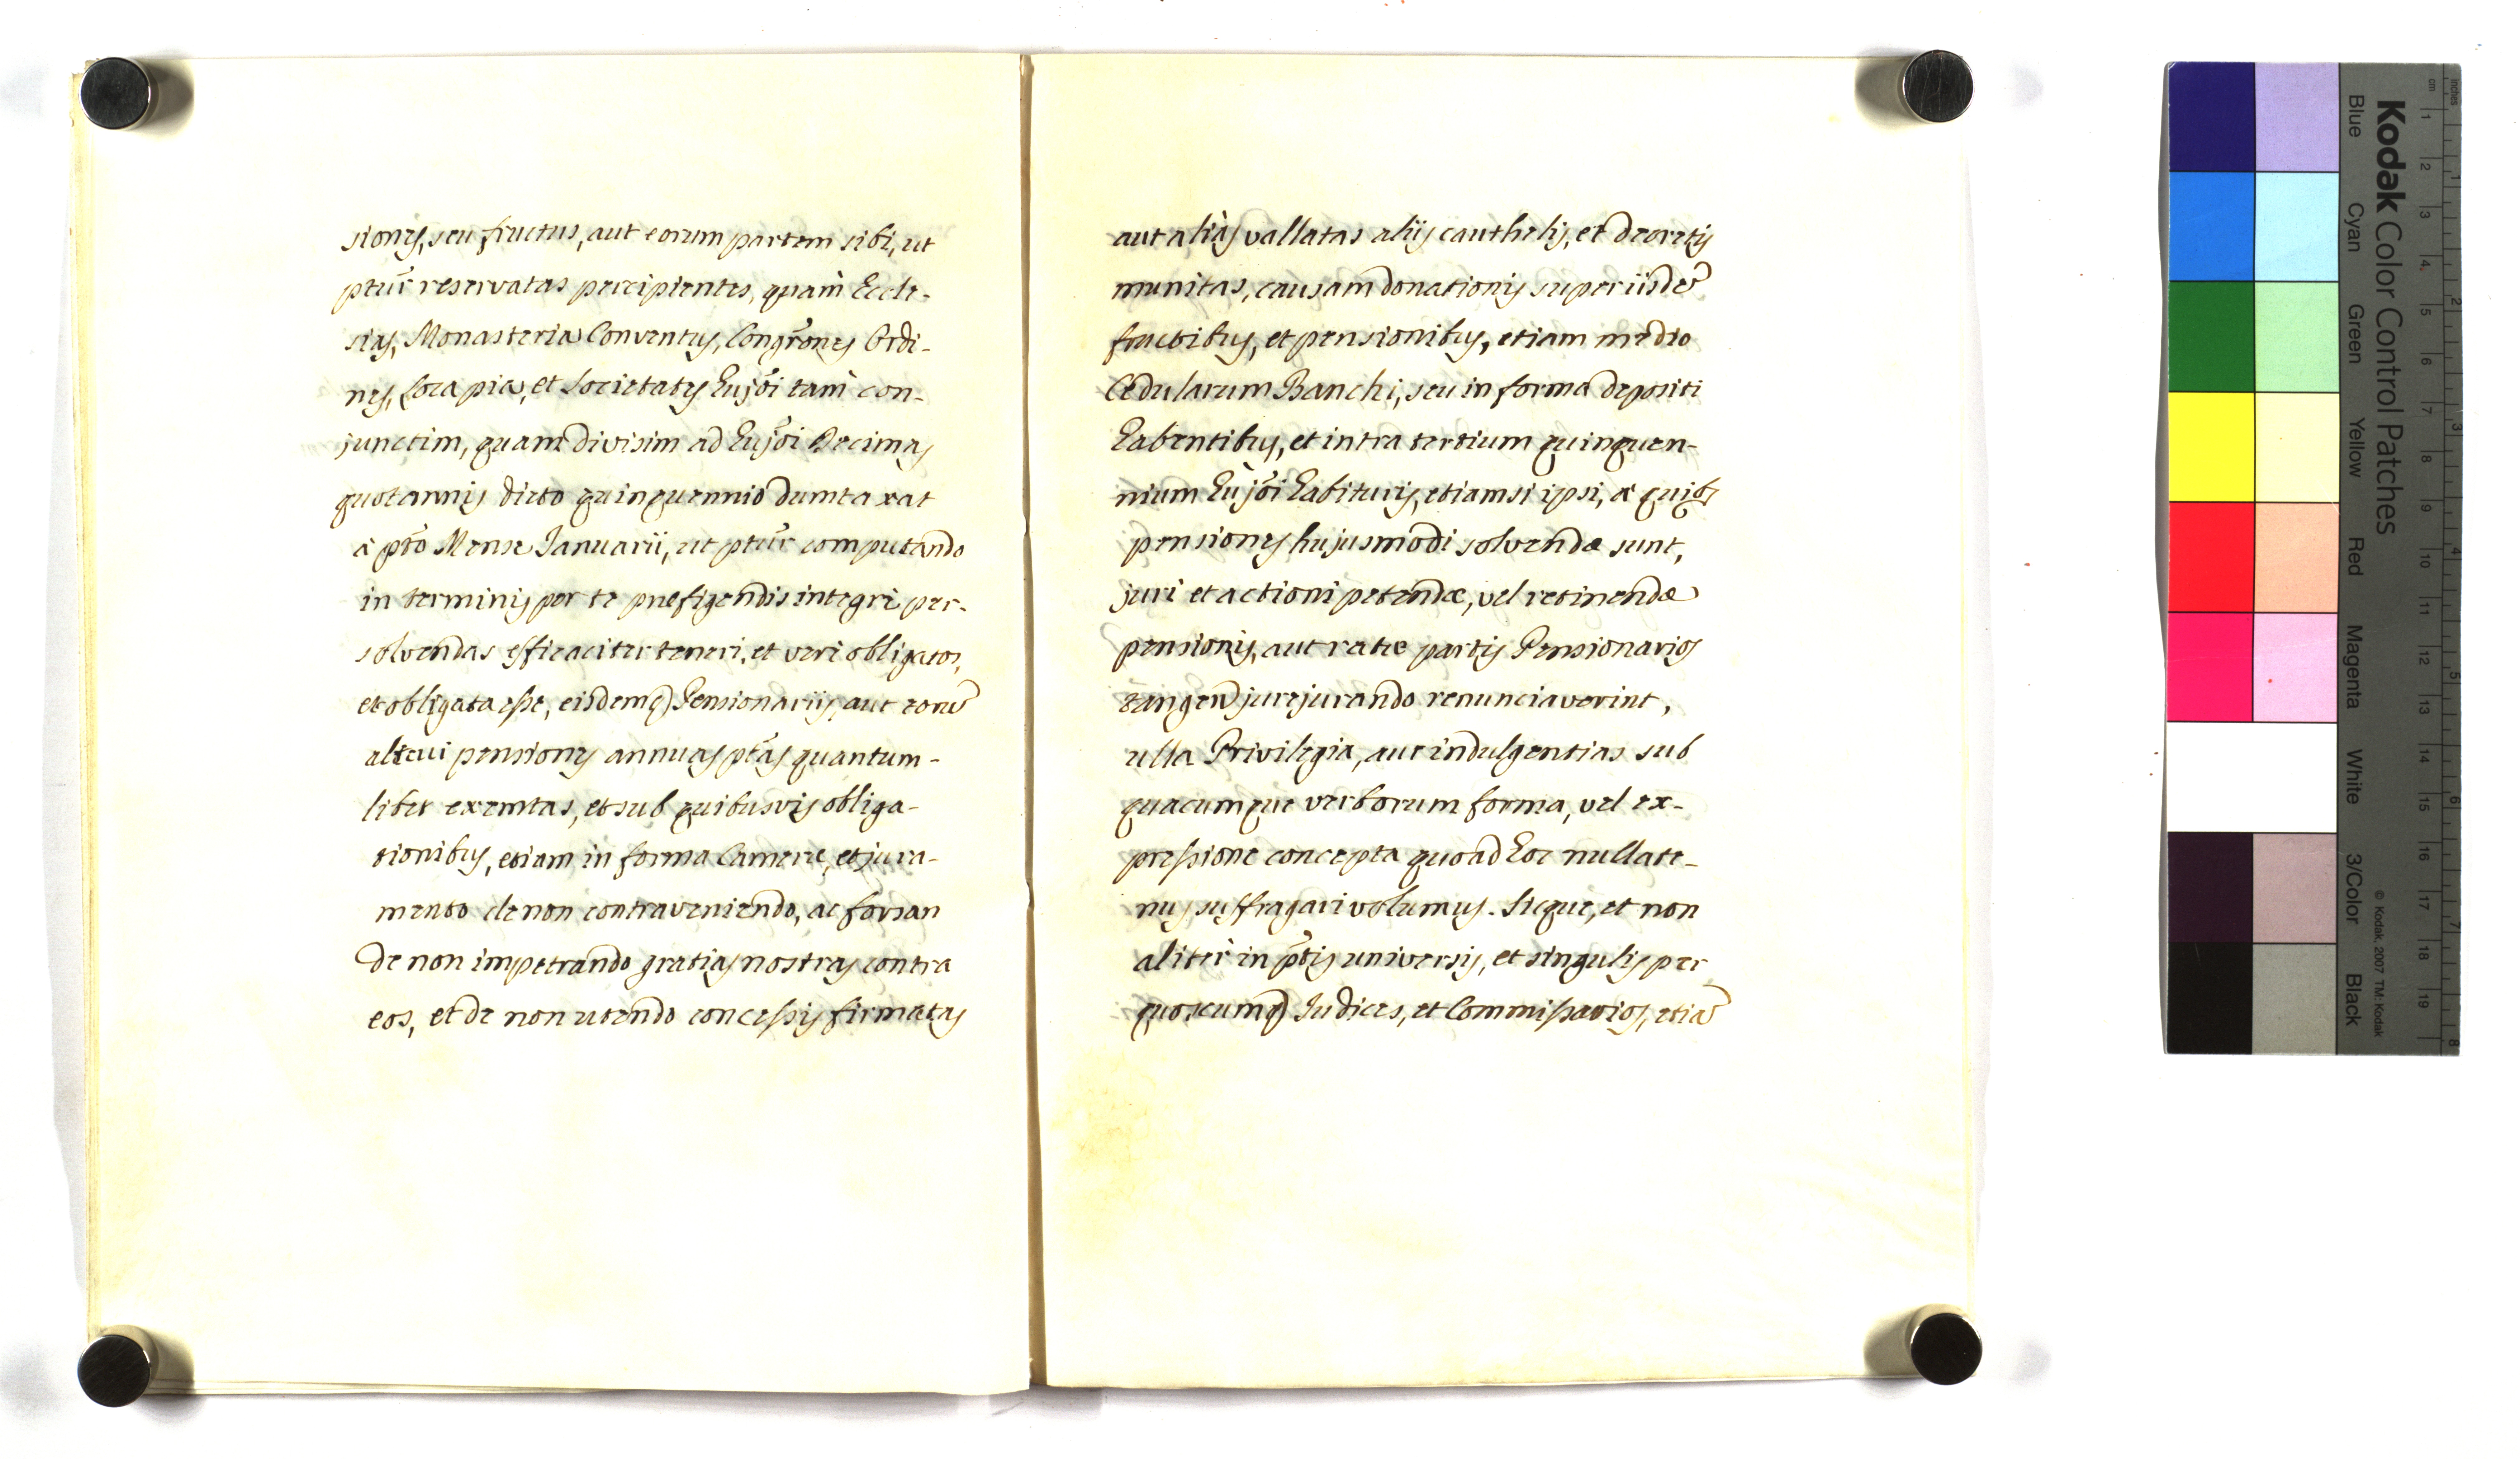 siones, seu fructus, aut eorum partem sibi, ut
ptur̃ reservatas percipientes, quàm Eccle-
sias, Monasteria Conventus, Congrõnes Ordi-
nes, Loca pia, et Societates hujõi tam con-
junctim, quam divisim ad hujõi Decimas
quotannis dicto quinquennio dumtaxat
à pto Mense Januarii, ut ptur̃ computando
in terminis per te prefigendis integrè per-
solvendas efficaciter teneri, et verè obligatos,
et obligata esse, eisdemq Pensionariis, aut eorũ
alicui pensiones annuas ptas quantum-
libet exemtas, et sub quibusvis obliga-
tionibus, etiam in forma Camere, et jura-
mento de non contraveniendo, ac forsan
de non impetrando gratias nostras contra
eos, et de non utendo concessis firmatas
aut aliàs vallatas aliis cauthelis, et decretis
munitas, causam donationis super iisdẽ
fructibus, et pensionibus, etiam medio
Cedularum Banchi, seu in forma depositi
habentibus, et intra tertium quinquen-
nium hujõi habituris, etiamsi ipsi, à quibs
pensiones hujusmodi solvendæ sunt,
juri et actioni petendæ, vel retinendæ
pensionis, aut ratæ partis Pensionarios
tangen jurejurando renunciaverint,
ulla Privilegia, aut indulgentias sub
quacumque verborum forma, vel ex-
pressione concepta quoad hoc nullate-
nus suffragari volumus. Sicque, et non
aliter in ptis universis, et singulis per
quoscumq Judices, et Commissarios, etiã
Kodak Color Control Patches
Blue Cyan Green Yellow Red Magenta White 3/Color Black
© Kodak, 2007 TM: Kodak
inches
cm
1 2 3 4 5 6 7 8 9 10 11 12 13 14 15 16 17 18 19
1 2 3 4 5 6 7 8